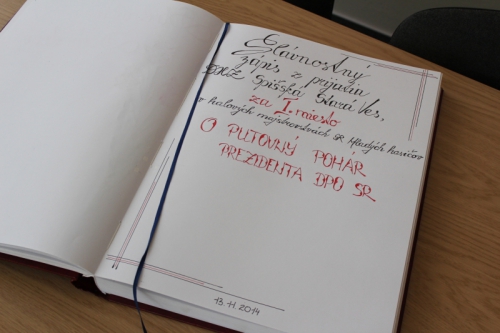 Slávnostný
zápis z prijatia
DHZ Spišská Stará Ves,
za I. miesto
v halových majstrovstvách SR Mladých hasičov
O PUTOVNÝ POHÁR
PREZIDENTA DPO SR
13. 11. 2014